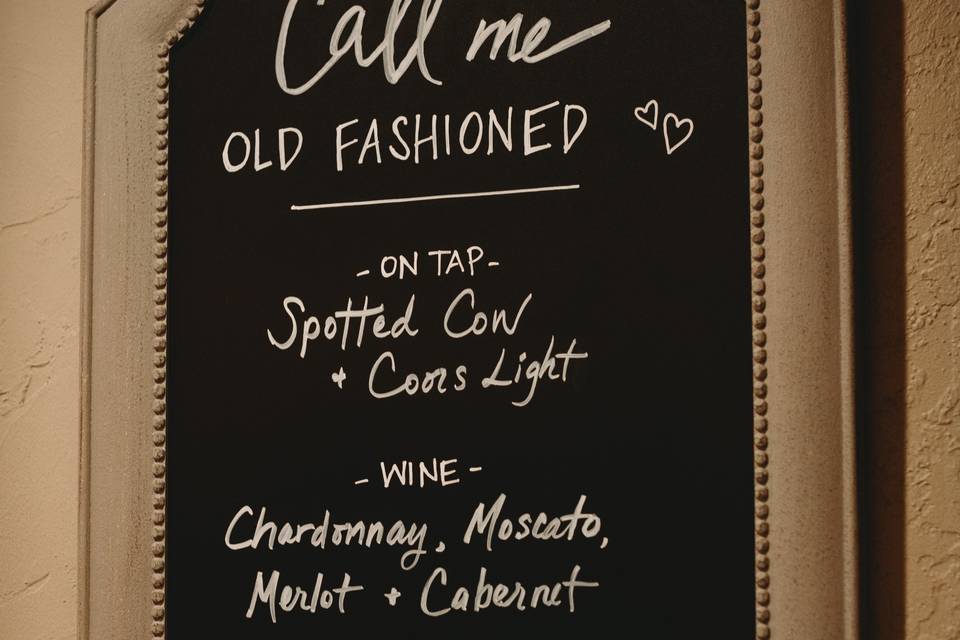 Call me
OLD FASHIONED
- ON TAP -
Spotted Cow
+ Coors Light
- WINE -
Chardonnay, Moscato,
Merlot + Cabernet